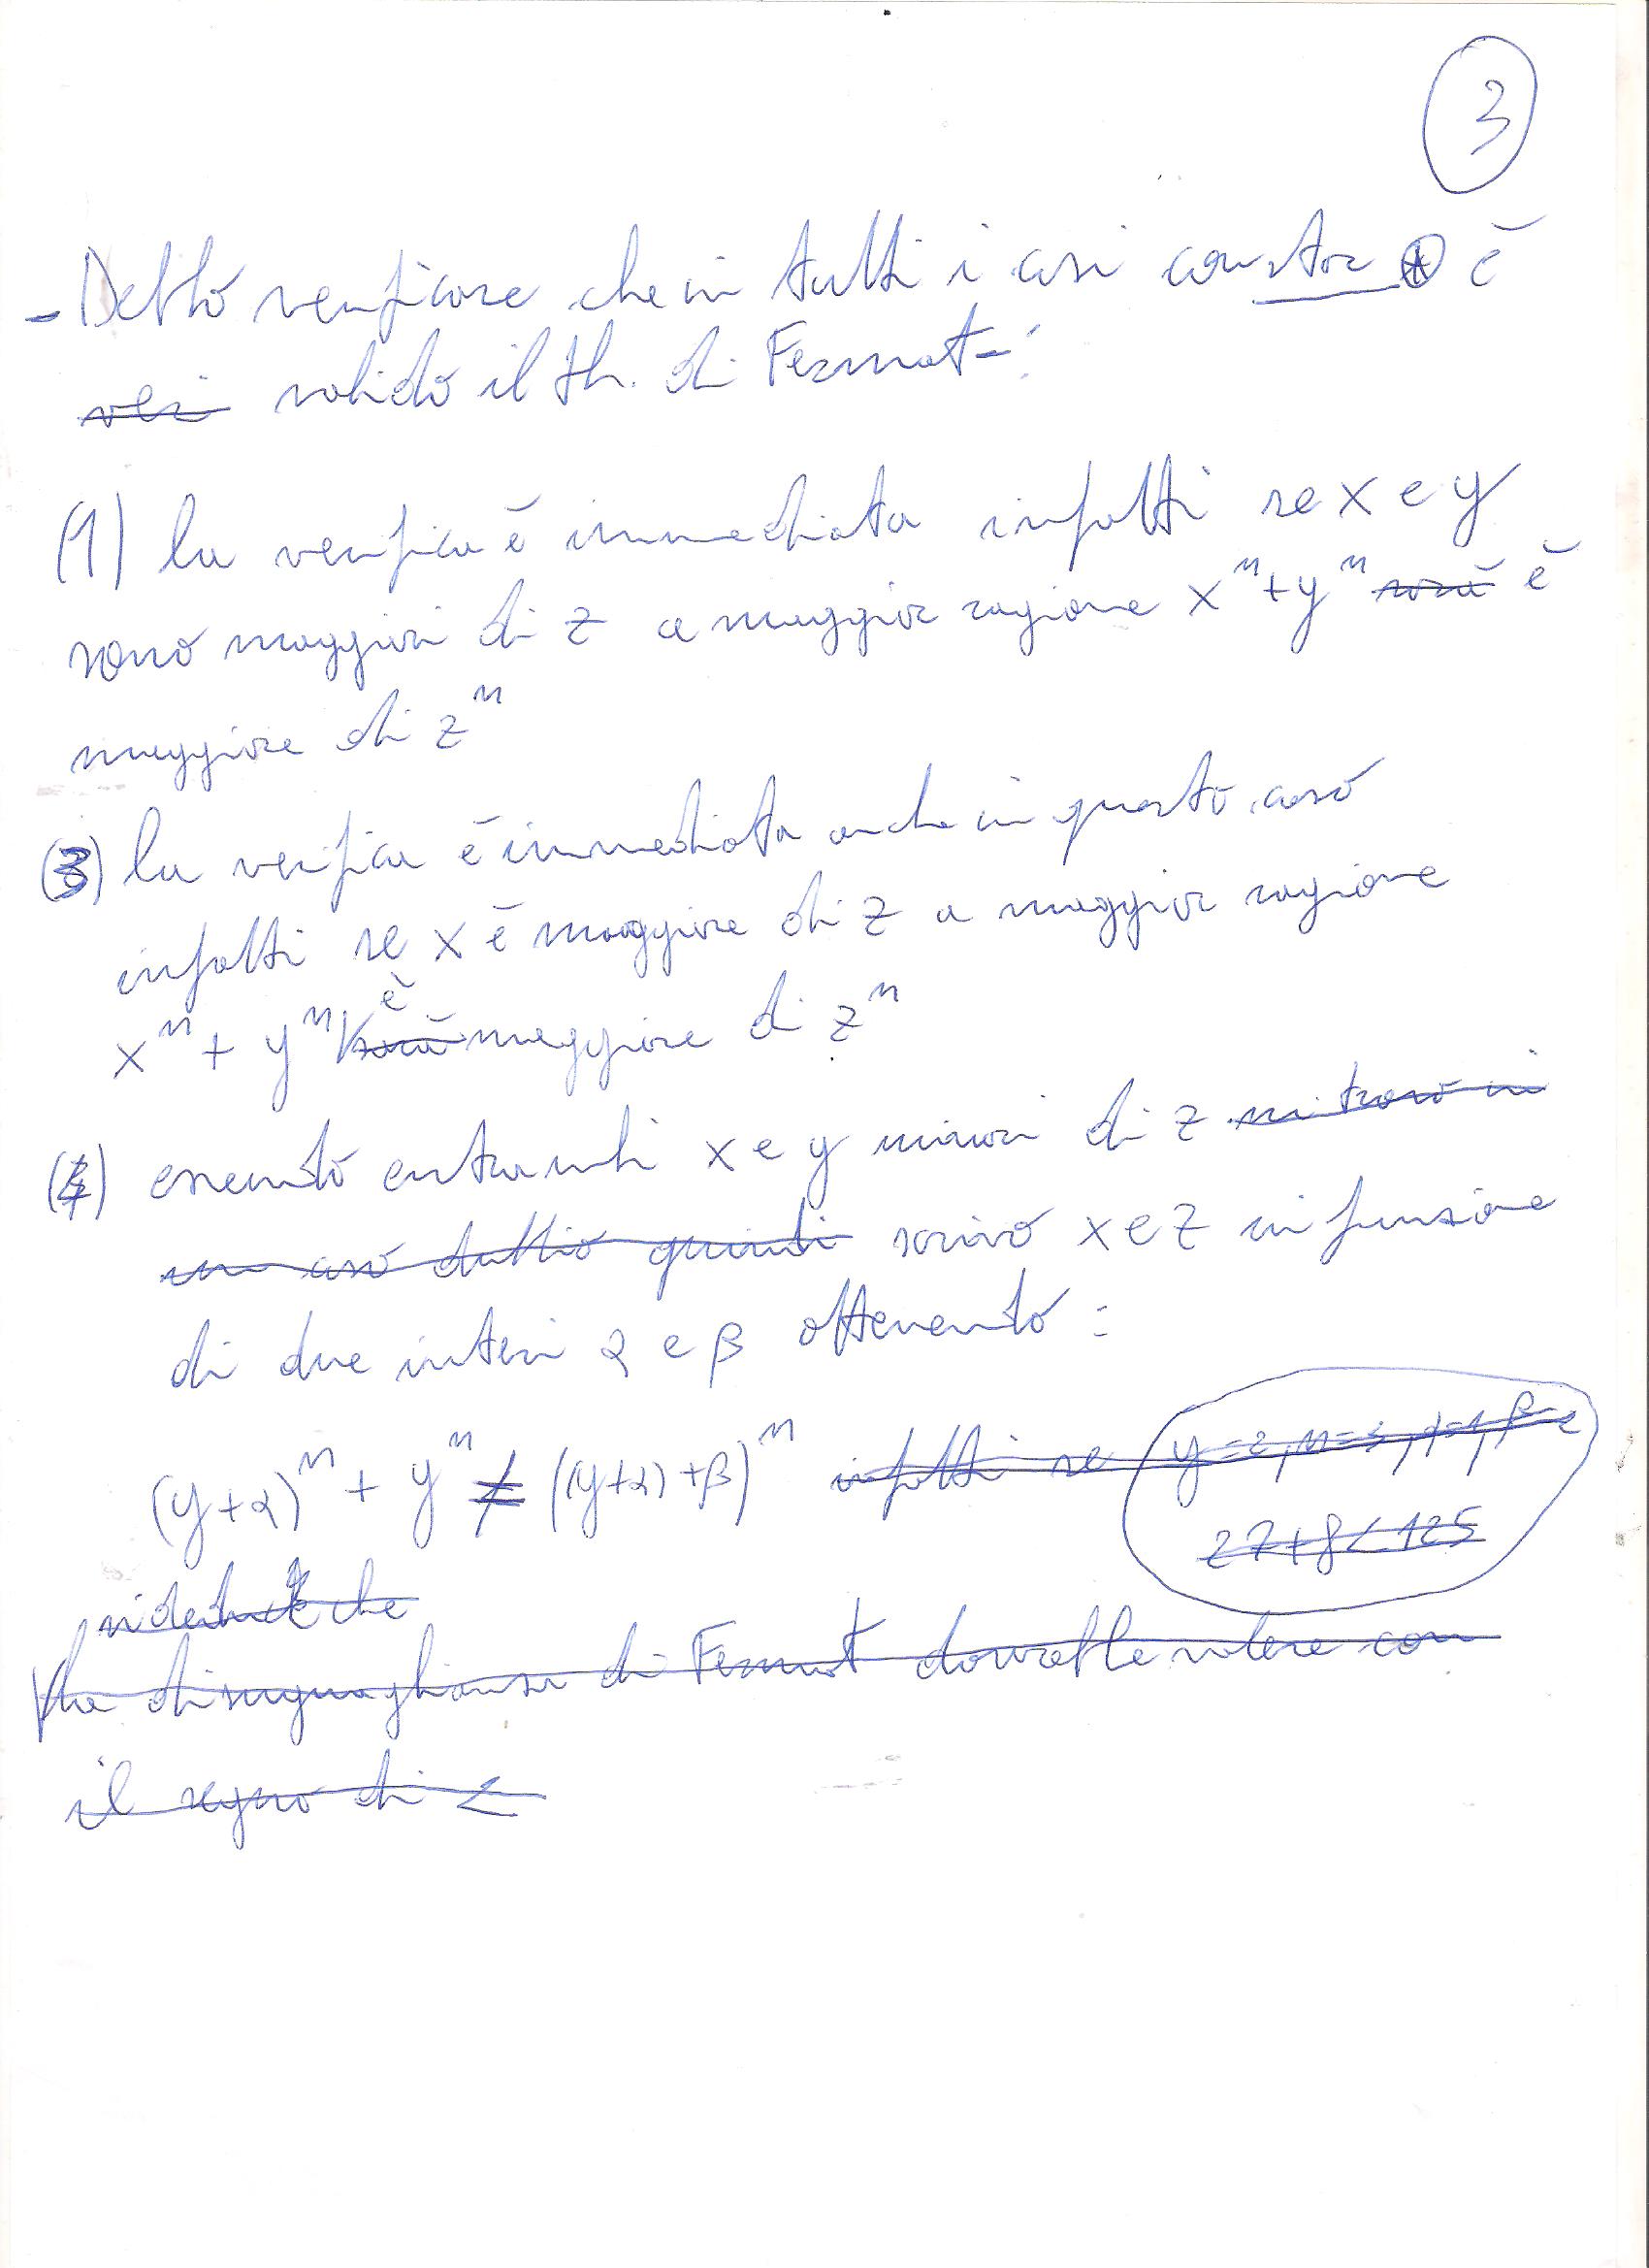 3
- Debbo verificare che in tutti i casi con star * è
veri valido il th. di Fermat-:
(1) la verifica è immediata infatti se x e y
sono maggiori di z a maggior ragione x^n + y^n sarà è
maggiore di z^n
(3) la verifica è immediata anche in questo caso
infatti se x è maggiore di z a maggior ragione
è
x^n + y^n sarà maggiore di z^n
(4) essendo entrambi x e y minori di z mi trovo in
un caso dubbio quindi scrivo x e z in funzione
di due interi α e β ottenendo:
(y+α)^n + y^n ≠ ((y+α)+β)^n infatti se y=2, n=3, α=1, β=2
27+8<125
che
la disuguaglianza di Fermat dovrebbe valere con
il segno di <